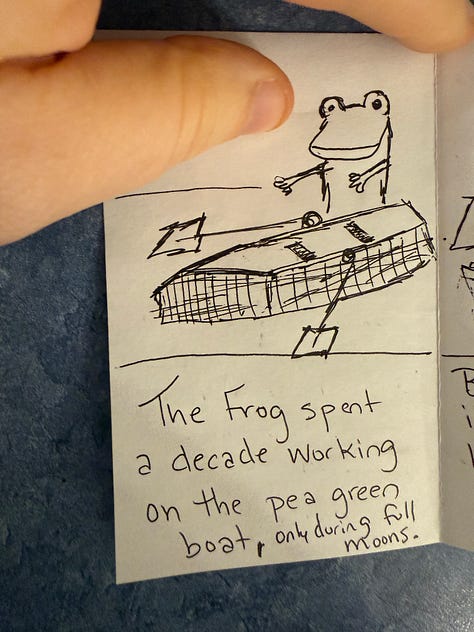 The Frog spent
a decade working
on the pea green
boat, only during full
moons.